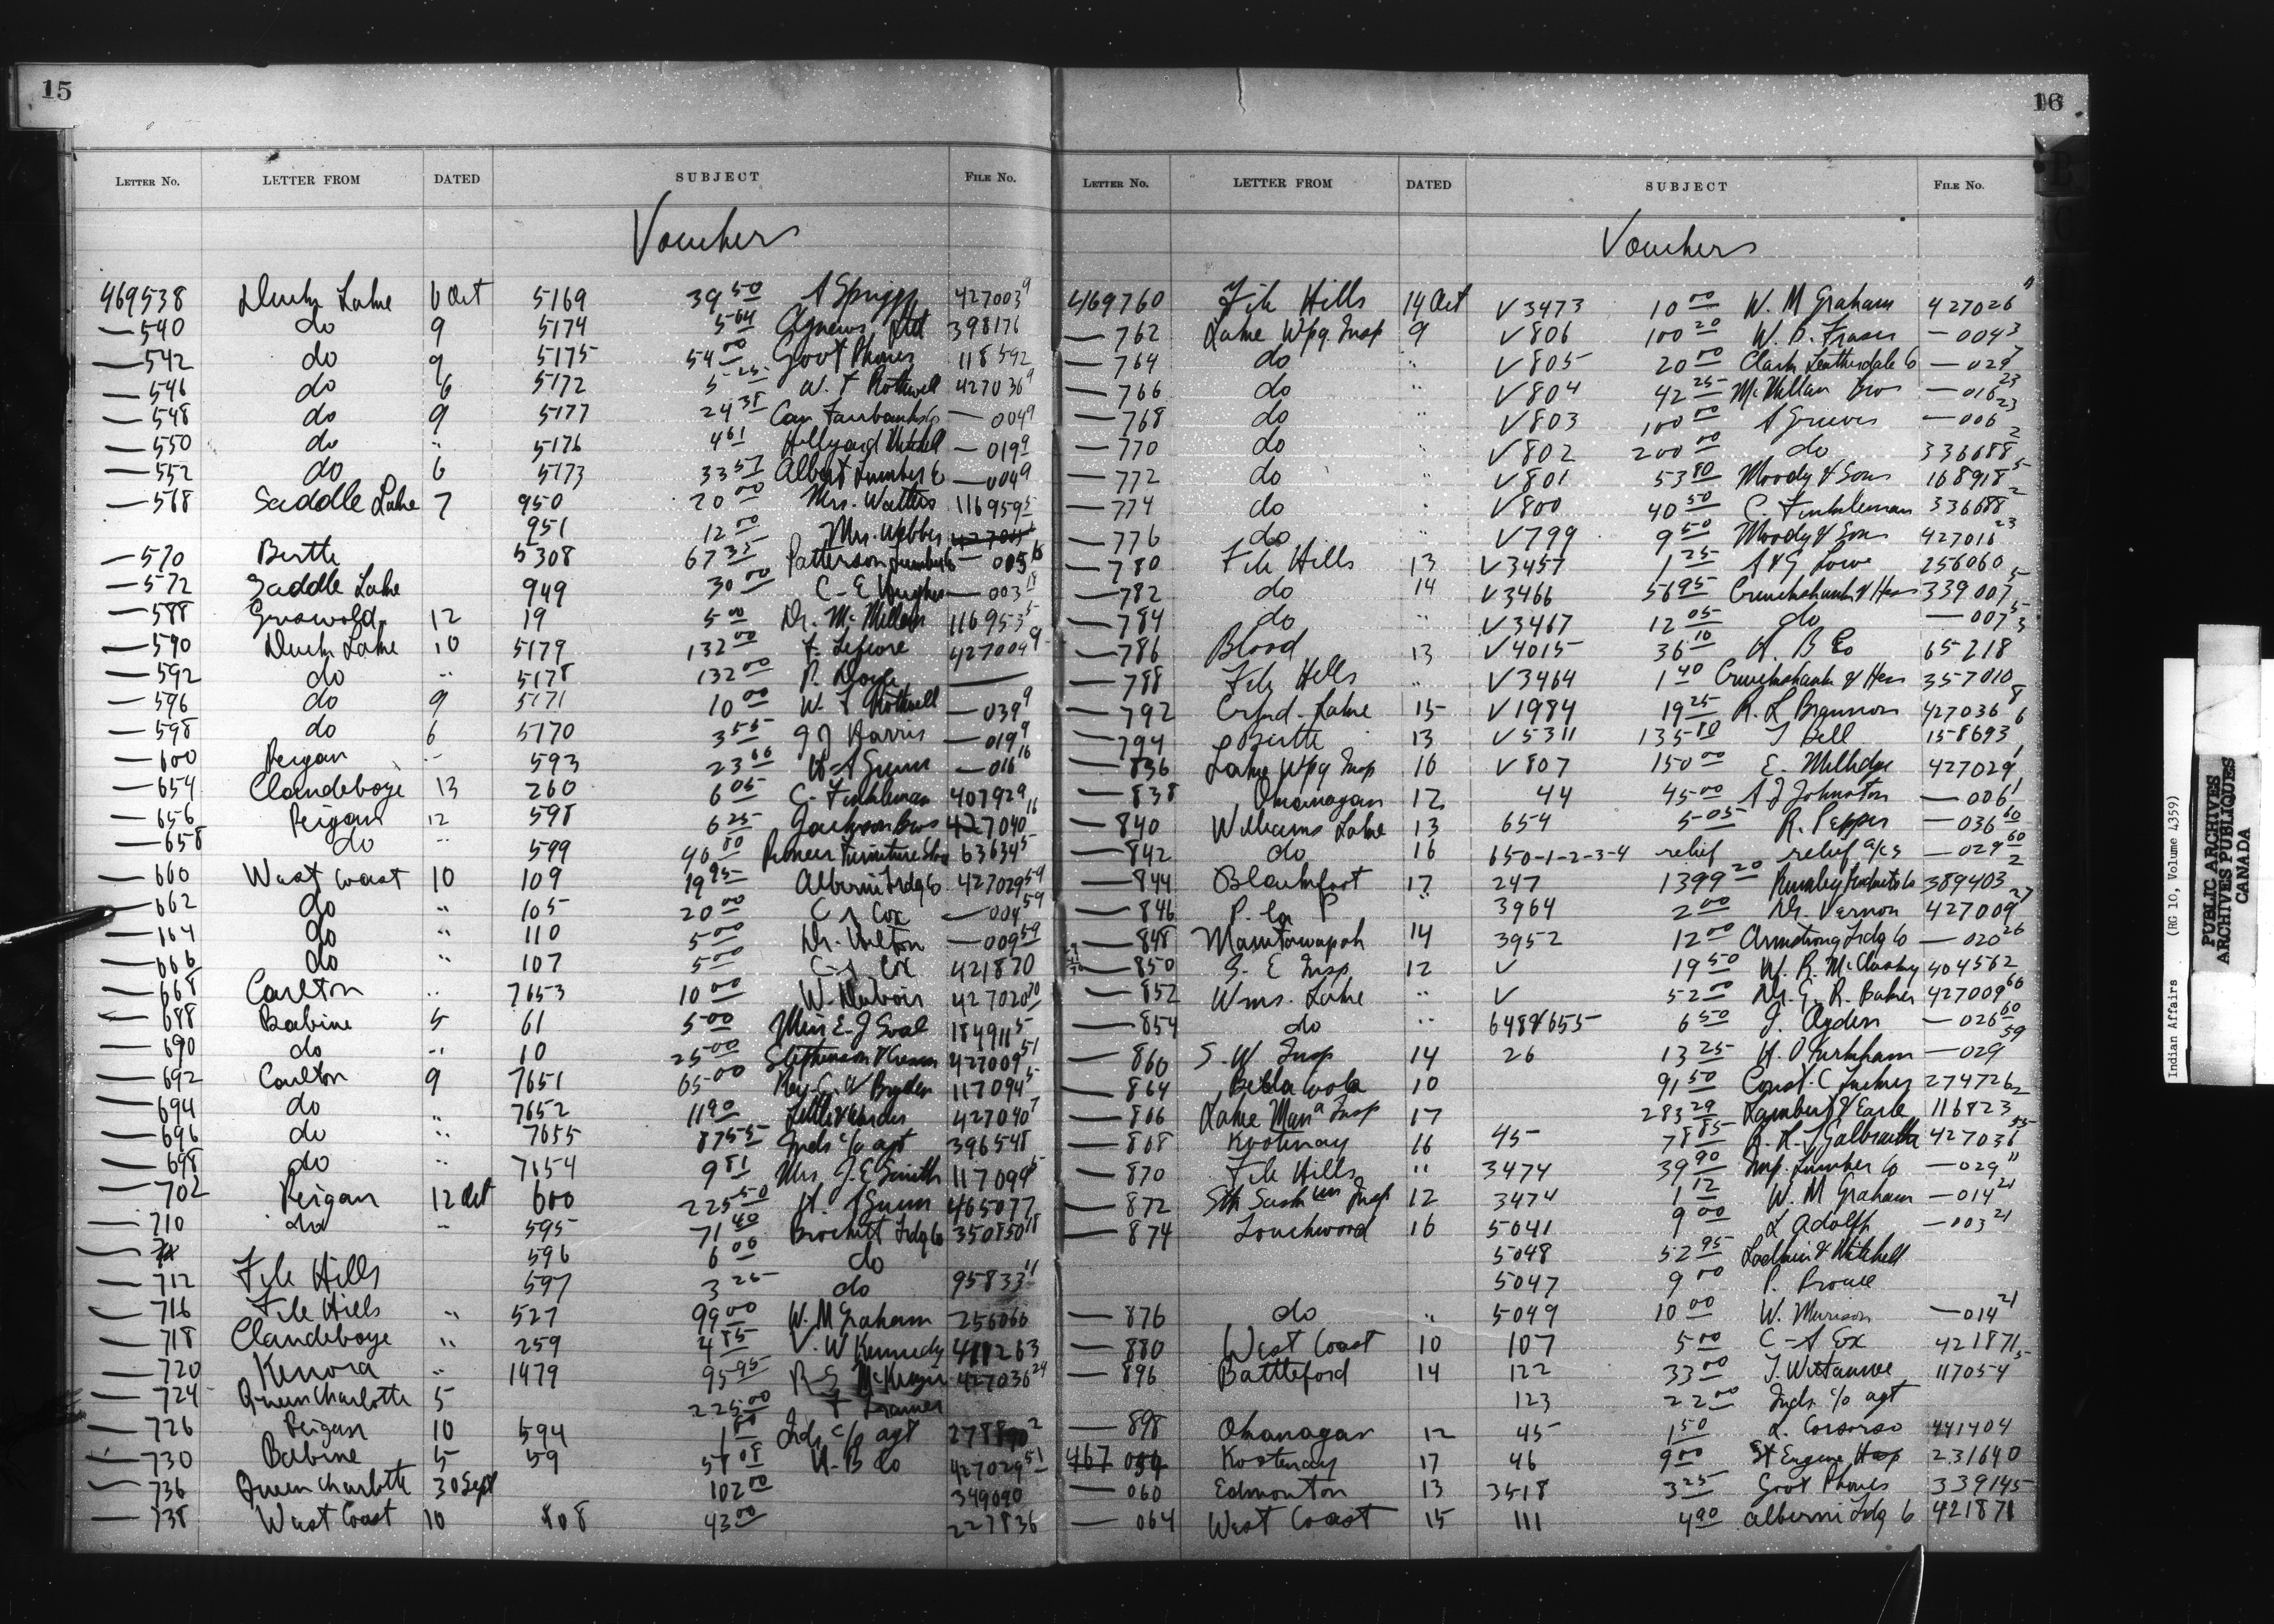 15
LETTER NO. LETTER FROM DATED SUBJECT FILE NO.
Vouchers
469538 Duck Lake 6 Oct 5169 39 50 A Spriggs 427003 9
— 540 do 9 5174 5 64 Agnews Ltd 398176
— 542 do 9 5175 54 00 Govt Phones 118592
— 546 do 6 5172 5 25 W. F Rothwell 427036 9
— 548 do 9 5177 24 38 Can Fairbanks Co — 004 9
— 550 do " 5176 4 61 Hillyard Mitchell — 019 9
— 552 do 6 5173 33 57 Albert Lumber Co — 004 9
— 568 Saddle Lake 7 950 20 00 Mrs. Walters 116959 5
951 12 00 Mrs. Webber
— 570 Birtle 5308 67 35 Patterson Lumber Co — 005 16
— 572 Saddle Lake 949 30 00 C- E Hughes — 003 18
— 588 Griswold 12 19 5 00 Dr. McMillan 116953 5
— 590 Duck Lake 10 5179 132 00 F. Lefevre 427004 9
— 592 do " 5178 132 00 P. Doyle —
— 596 do 9 5171 10 00 W. F Rothwell — 039 9
— 598 do 6 5170 3 55 J J Harris — 019 9
— 600 Peigan " 593 23 66 H- A Gunn — 016 16
— 654 Clandeboye 13 260 6 05 C- Finkleman 407929
— 656 Peigan 12 598 6 25 Jackson Bros 427040 11
— 658 do " 599 40 00 Pioneer Furniture Store 63634 5
— 660 West Coast 10 109 19 95 Alberni Trdg Co 427029 59
— 662 do " 105 20 00 C A Cox — 004 59
— 664 do " 110 5 00 Dr. — 009 59
— 666 do " 107 5 00 C- A Cox 421870
— 668 Carlton " 7653 10 00 W. Dubois 427020 20
— 688 Babine 5 61 5 00 Miss E- J Soal 184911 5
— 690 do " 10 25 00 Stephenson & 427009 51
— 692 Carlton 9 7651 65 00 Rev. C. W Bryden 117094 5
— 694 do " 7652 11 90 427040 7
— 696 do " 7655 87 55 Inds c/o agt 396548
— 698 do " 7654 9 81 Mrs. J. E Smith 117099 5
— 702 Peigan 12 Oct 600 225 50 H. A Gunn 465077
— 710 do " 595 71 40 Brockett Trdg Co 350850 18
596 6 00 do
— 712 File Hills 597 3 25 do 95833 11
— 716 File Hills " 527 99 00 W. M Graham 256060
— 718 Clandeboye " 259 4 85 V. W Kennedy 411263
— 720 Kenora " 1479 95 95 R S McKenzie 427036 24
— 724 Queen Charlotte 5 225 00
— 726 Peigan 10 594 Inds c/o agt
— 730 Babine 5 59 57 08 H. B Co 427029 51
— 736 Queen Charlotte 30 Sept 102 00 349090
— 738 West Coast 10 108 43 00 227836
16
LETTER NO. LETTER FROM DATED SUBJECT FILE NO.
Vouchers
469760 File Hills 14 Oct V 3473 10 00 W. M Graham 427026 11
— 762 Lake Wpg. Insp 9 V 806 100 20 W. D. Fraser — 004 3
— 764 do " V 805 20 00 Clark Leatherdale Co — 029 7
— 766 do " V 804 42 25 McMillan Bros — 016 23
— 768 do " V 803 100 00 A Grieves — 006 23
— 770 do " V 802 200 00 do 336688 2
— 772 do " V 801 53 80 Moody & Sons 168918 5
— 774 do " V 800 40 50 C. Finkleman 336688 2
— 776 do V 799 9 50 Moody & Sons 427016 23
— 780 File Hills 13 V 3457 1 25 A & G Lowe 256060
— 782 do 14 V 3466 56 95 Cruickshank & Hess 339007 5
— 784 do " V 3467 12 05 do — 007 5
— 786 Blood 13 V 4015 36 10 H. B Co 65218 3
— 788 File Hills " V 3464 1 40 Cruickshank & Hess 357010
— 792 Crkd- Lake 15 V 1984 19 25 R. L Brannon 427036 8
— 794 Birtle 13 V 5311 135 80 J Bell 158693 6
— 836 Lake Wpg Insp 16 V 807 150 00 E. Millidge 427029 1
— 838 Okanagan 12 44 45 00 A J Johnston — 006 1
— 840 Williams Lake 13 654 5 05 R. Pepper — 036 60
— 842 do 16 650-1-2-3-4 relief relief a/cs — 029 60
— 844 Blackfoot 17 247 1399 20 Rumley Products Co 389403 2
— 846 P. la P " 3964 2 00 Dr. Vernon 427009 27
— 848 Manitowapah 14 3952 12 00 Armstrong Trdg Co — 020 26
— 850 S. E Insp 12 V 19 50 W. R. McClusky 404562
— 852 Wms. Lake " V 52 00 Dr. G. R. Baker 427009 60
— 854 do " 648 & 655 6 50 J. Ogden — 026 60
— 860 S. W Insp 14 26 13 25 H. O Kirkham — 029 59
— 864 Bella Coola 10 91 50 Const. C Tuckey 274726 2
— 866 Lake Man a Insp 17 283 29 Lambert & Earle 116823
— 868 Kootenay 16 45 78 85 R. H. J Galbraith 427036 55
— 870 File Hills " 3474 39 90 Imp. Lumber Co — 029 11
— 872 Sth Sask un Insp 12 3474 1 12 W. M Graham — 014 21
— 874 Touchwood 16 5041 9 00 L Adolph — 003 21
5048 52 95 & Mitchell
5047 9 00 P.
— 876 do " 5049 10 00 W. Murison — 014 21
— 880 West Coast 10 107 5 00 C- A Cox 421871
— 896 Battleford 14 122 33 00 J. Wuttunee 117054 5
123 22 00 Inds. c/o agt
— 898 Okanagan 12 45 1 50 L. Casorso 441404
467 054 Kootenay 17 46 9 00 St Eugene Hosp 231640
— 060 Edmonton 13 3518 3 25 Govt Phones 339145
— 064 West Coast 15 111 4 90 Alberni Trdg Co 421871
Indian Affairs (RG 10, Volume 4359)
PUBLIC ARCHIVES
ARCHIVES PUBLIQUES
CANADA